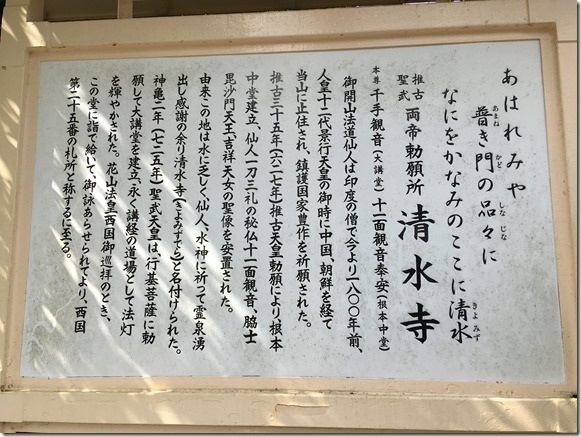 あはれみや
普き門の品々に
あまね かど しな じな
なにをかなみのここに清水
きよみず
推古
聖武
両帝勅願所 清水寺
本尊 千手観音(大講堂) 十一面観音奉安(根本中堂)
御開山法道仙人は印度の僧で今より一八〇〇年前、
人皇十二代景行天皇の御時に中国、朝鮮を経て
当山に止住され、鎮護国家豊作を祈願された。
推古三十五年(六二七年)推古天皇勅願により、根本
中堂建立、仙人一刀三礼の秘仏十一面観音、脇士
毘沙門天王、吉祥天女の聖像を安置された。
由来この地は水に乏しく、仙人、水神に祈って霊泉湧
出し感謝の余り清水寺(きよみずでら)と名付けられた。
神亀二年(七二五年)聖武天皇は、行基菩薩に勅
願して大講堂を建立、永く講経の道場として法灯
を輝やかされた。花山法皇西国御巡拝のとき、
この堂に詣で給いて、御詠あらせられてより、西国
第二十五番の札所と称するに至る。